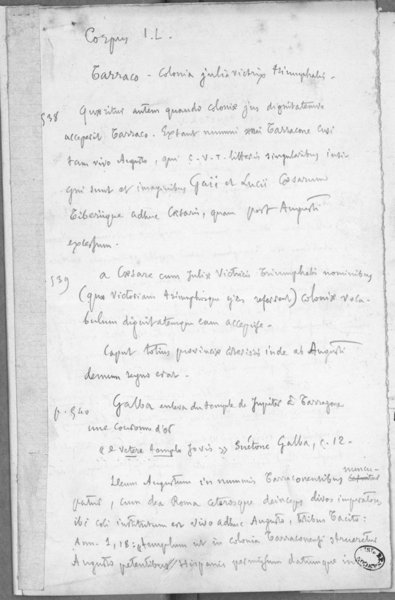 Corpus I.L.
Tarraco - Colonia julia victrix triumphalis.
538 Quaeritur autem quando coloniae jus dignitatemve
acceperit Tarraco. Extant nummi Tarracone cusi
tam vivo Augusto, qui C.V.T. litteris singularibus insi-
gni sunt et imaginibus Gaii et Lucii Caesarum
Tiberiique adhuc Caesaris, quam post Augusti
excessum.
539 a Caesare cum Juliae Victricis Triumphalis nominibus
(quae victoriam triumphosque ejus referunt) coloniae voca-
bulum dignitatemque eam accepisse.
Caput totius provinciae citerioris inde ab Augusti
demum regno erat.
p. 540 Galba enleva du temple de Jupiter à Tarragone
une couronne d'or
« e vetere templo Jovis » Suétone Galba, c. 12.
Deum Augustum in nummis Tarraconensibus nuncu-
patur, cum dea Roma ceterosque deinceps divos imperatores
ibi coli institutum est vivo adhuc Augusto, testibus Tacito:
Ann. 1, 78: templum ut in colonia Tarraconensi strueretur
Augusto petentibus Hispanis permissum datumque in